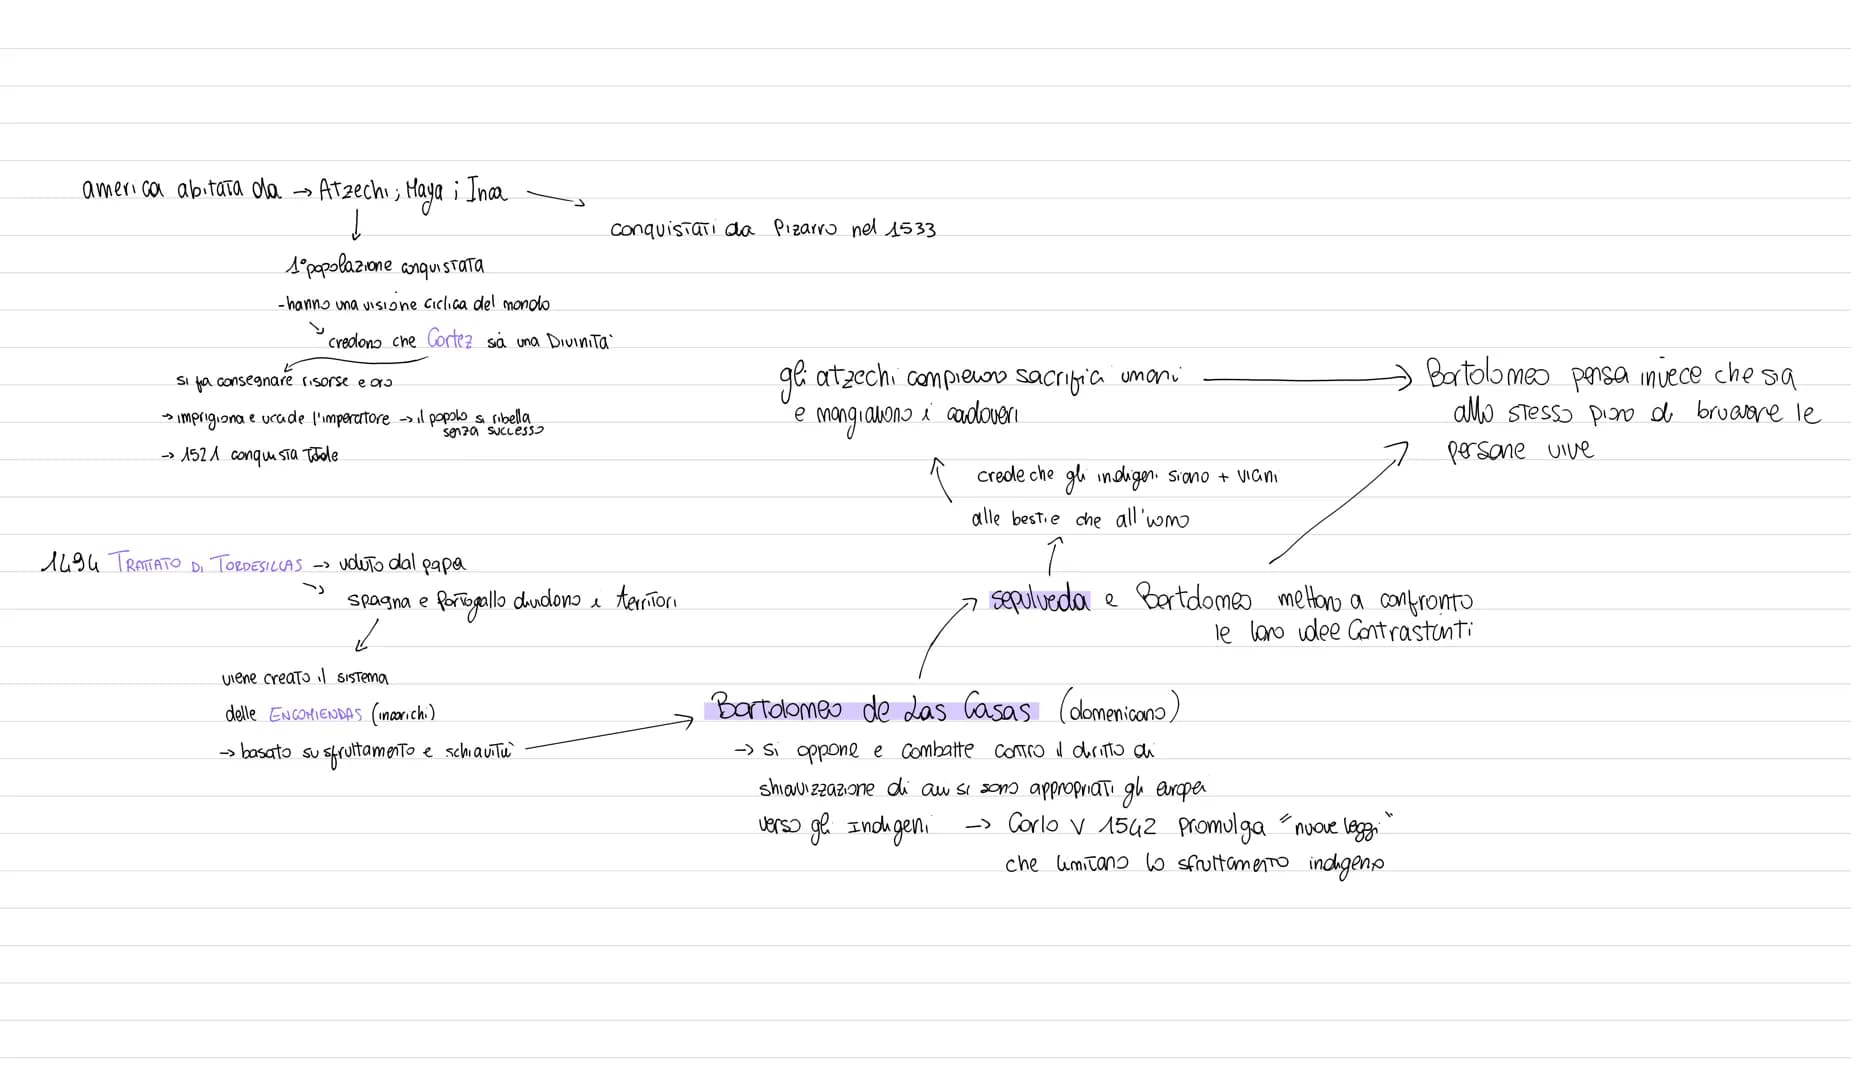 america abitata da → Atzechi; Maya; Inca →
conquistati da Pizarro nel 1533
1° popolazione conquistata
- hanno una visione ciclica del mondo
credono che Cortez sia una Divinità
si fa consegnare risorse e oro
→ imprigiona e uccide l'imperatore → il popolo si ribella
senza successo
→ 1521 conquista totale
gli atzechi compievano sacrifici umani
e mangiavano i cadaveri
Bartolomeo pensa invece che sia
allo stesso piano di bruciare le
persone vive
crede che gli indigeni siano + vicini
alle bestie che all'uomo
1494 TRATTATO DI TORDESILLAS → voluto dal papa
spagna e Portogallo dividono i territori
sepulveda e Bartolomeo mettono a confronto
le loro idee Contrastanti
viene creato il sistema
delle ENCOMIENDAS (incarichi)
→ basato su sfruttamento e schiavitù
Bartolomeo de Las Casas (domenicano)
→ si oppone e combatte contro il diritto di
shiavizzazione di cui si sono appropriati gli europei
verso gli Indigeni → Carlo V 1542 promulga "nuove leggi"
che limitano lo sfruttamento indigeno